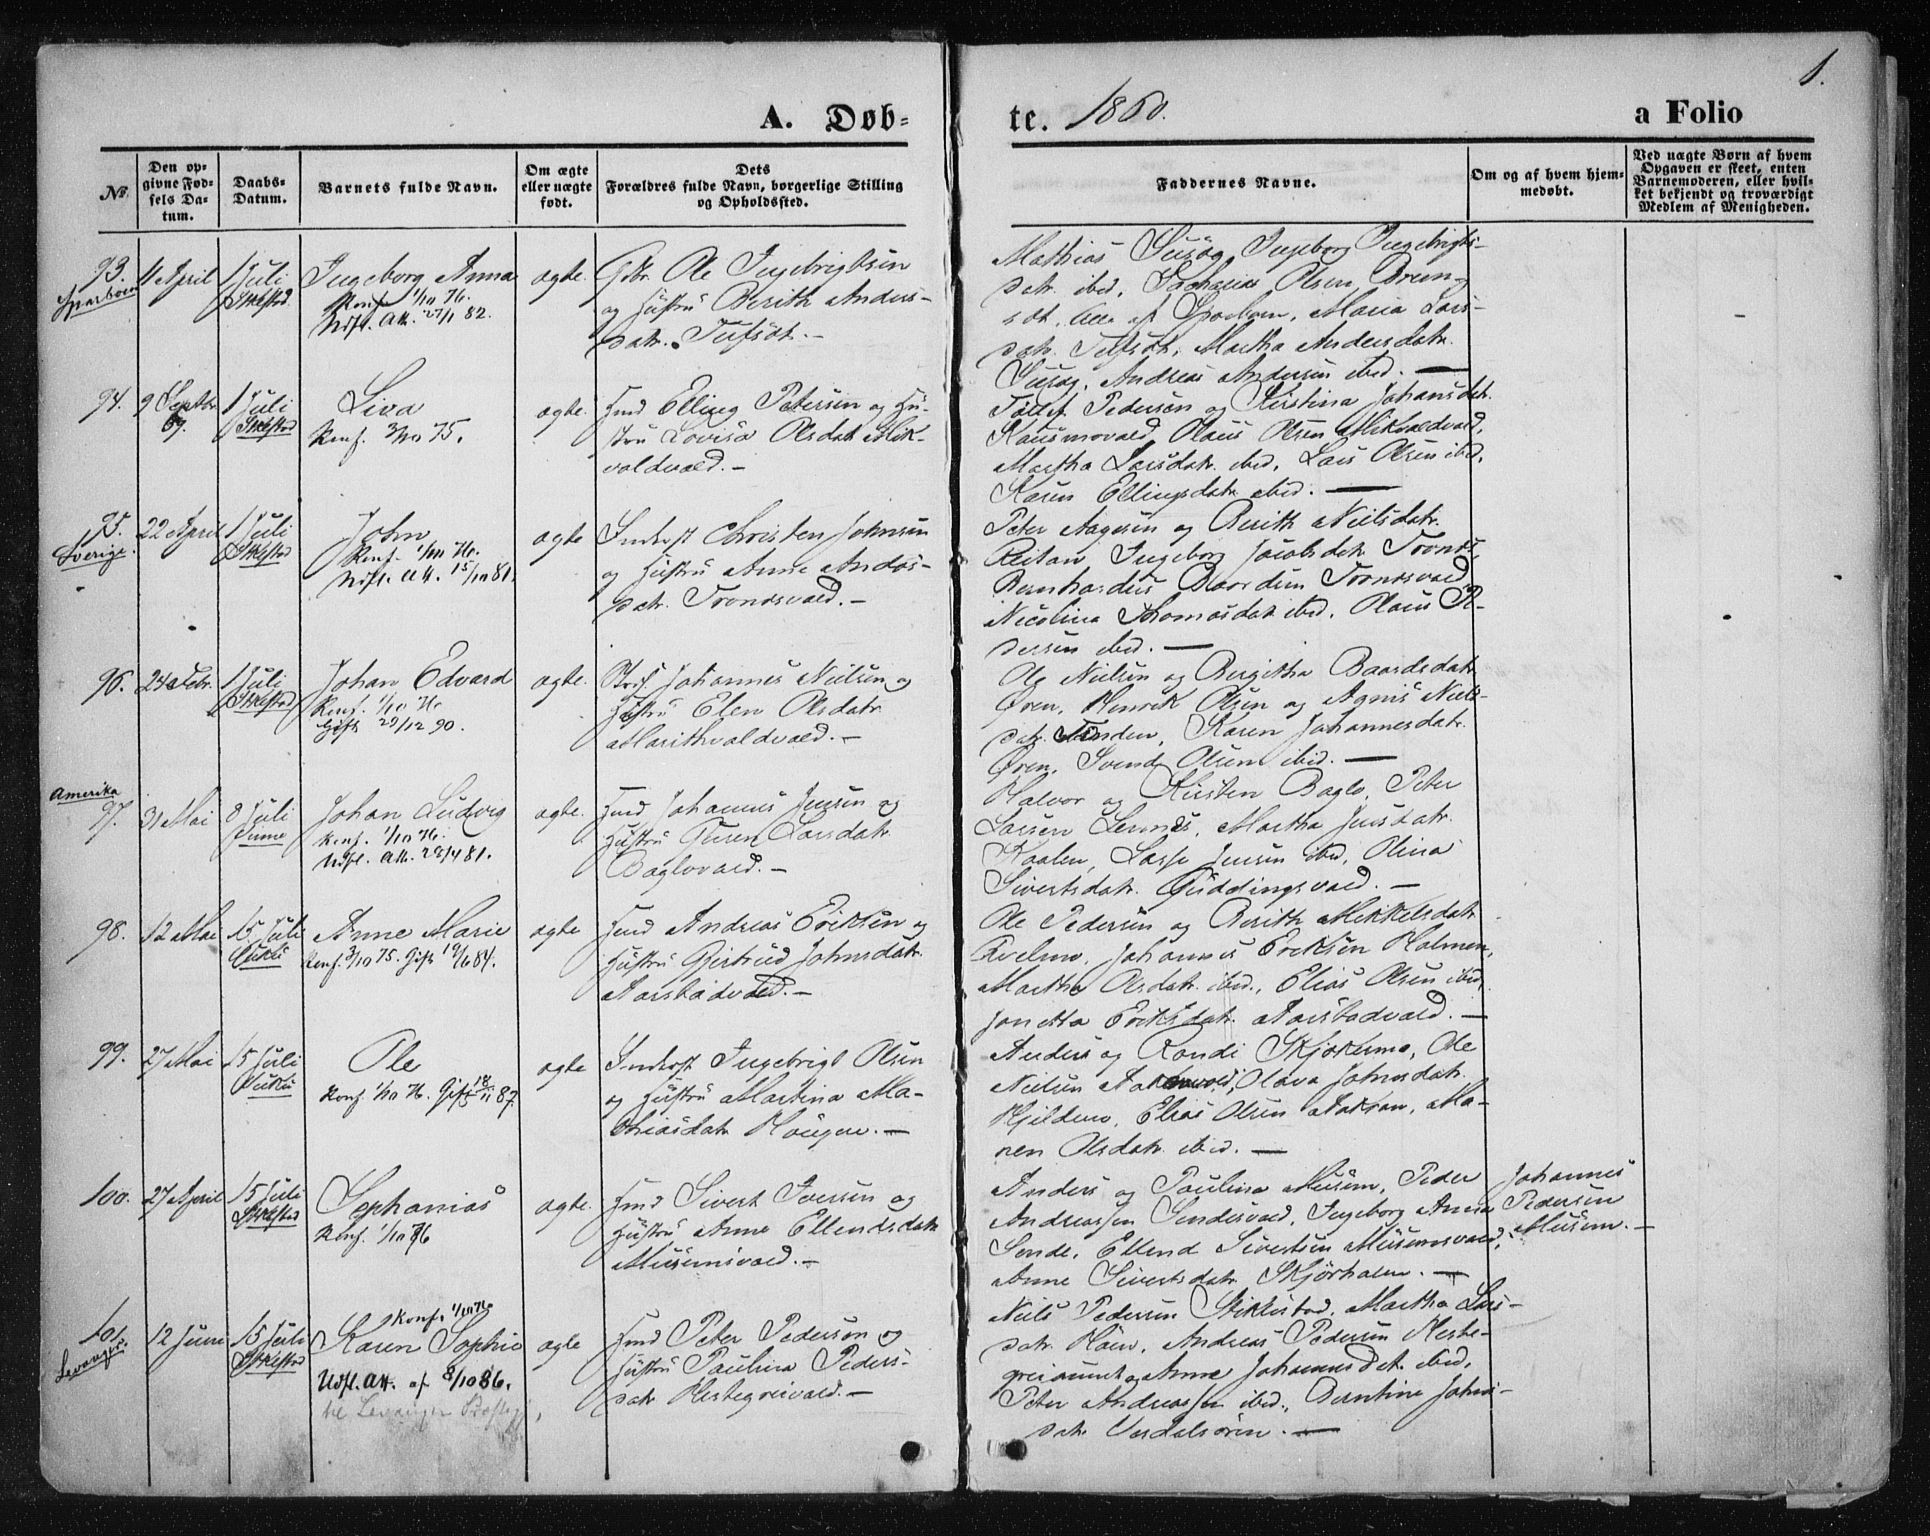 1.
A. Døb-
te. 1860.
a Folio
No.
Den op-
givne Fød-
sels Da-
tum.
Daabs-
Datum.
Barnets fulde Navn.
Om ægte
eller uægte
født.
Dets
Forældres fulde Navn, borgerlige Stilling
og Opholdssted.
Faddernes Navne.
Om og af hvem hjem-
medøbt.
Ved uægte Børn af hvem
Opgaven er skeet, enten
Barnemoderen, eller hvil-
ket bekjendt og troværdigt
Medlem af Menigheden.
93.
Sparboen
11 April
1 Juli
Stklstad
Ingeborg Anna
Konf. 1/10 76.
Udst. Att. 27/1 82.
ægte.
Gbr. Ole Ingebrigtsen
og Hustru Berith Anders-
datr. Tufsöt. —
Mathias Susøg, Ingeborg Ingebrigts-
datr. ibid, Zacharias Olsen Brem-
söt, alle af Sparboen, Maria Lars-
datr. Tufsöt, Martha Andersdatr.
Susøg, Andreas Andersen ibid. —
94.
9 Septbr
59.
1 Juli
Stklstad
Liva
Konf. 3/10 75.
ægte.
Hmd Elling Petersen og Hu-
stru Lovisa Olsdatr Mik-
voldvald. —
Tollef Pedersen og Kirstina Johansdatr.
Kausmovald, Olaus Olsen Mikvoldvald,
Martha Larsdatr. ibid, Lars Olsen ibid,
Karen Ellingsdatr ibid. —
95.
Sverige.
22 April
1 Juli
Stklstad
John
Konf. 1/10 76.
Udst. Att. 15/10 81.
ægte
Inderst Christen Johnsen
og Hustru Anne Andos-
datr. Tronesvald. —
Peter Aagesen og Berith Nielsdatr.
Reitan, Ingeborg Jacobsdatr Trones,
Bernhardus Baardsen Tronesvald
Nicolina Thomasdatr ibid, Olaus P-
dersen ibid. —
96.
24 Febr.
1 Juli
Stklstad
Johan Edvard
Konf. 1/10 76
Gift 29/12 90.
ægte.
Johannes Nielsen og
Hustru Elen Olsdatr
Marithvoldvald. —
Ole Nielsen og Birgitha Baardsdatr
Øren, Henrik Olsen og Agnis Niels-
datr. Tinden, Karen Johannesdatr.
Øren, Svend Olsen ibid. —
Amerika
97.
31 Mai
8 Juli
Vinne
Johan Ludvig
Konf. 1/10 76.
Udst. Att. 23/4 81.
ægte.
Hmd Johannes Jensen og
Hustru Guren Larsdatr.
Baglovald. —
Halvor og Kirsten Baglo, Peter
Larsen Lennes, Martha Jensdatr.
Kaalen, Lasse Jensen ibid, Olina
Sivertsdatr. Guddingsvald. —
98.
12 Mai
15 Juli
Vuku
Anne Marie
Konf. 3/10 75. Gift 19/6 84.
ægte
Hmd Andreas Eriksen og
Hustru Gjertrud Johnsdatr.
Aarstadvald. —
Ole Pedersen og Berith Mikkelsdatr
Kvelmo, Johannes Eriksen Holmen,
Martha Olsdatr. ibid., Elias Olsen ibid,
Jonetta Eriksdatr. Aarstadvald. —
99.
27 Mai
15 Juli
Vuku
Ole
Konf. 1/10 76. Gift 18/11 87.
ægte
Inderst Ingebrigt Olsen
og Hustru Martina Ma-
thiasdatr Hougen. —
Anders og Randi Skjækermo, Ole
Nielsen Olava Johnsdatr.
Kjelden, Elias Olsen Aakran, Ma-
ren Olsdatr ibid. —
100.
27 April
15 Juli
Stklstad
Sephanias
Konf. 1/10 76
ægte.
Hmd Sivert Iversen og
Hustru Anne Ellendsdatr
Musemsvald. —
Anders og Paulina Musem, Peder
Andreassen Sendesvald, Ingeborg Anna
Sende, Ellend Sivertsen Musemsvald,
Anne Sivertsdatr Skjørholm. —
Johannes
Pedersen
Musem. —
101.
Levanger.
12 Juni
15 Juli
Stklstad
Konf. 1/10 76
Karen Sophie
Udst. Att. af 8/10 86.
til Levanger
ægte
Hmd Peter Pederson og
Hustru Paulina Peders-
datr Hestegreivald. —
Niels Pedersen Stiklestad, Martha Lars-
datr. Haen, Andreas Pedersen Heste-
greiaunet og Anne Johannesdatr. ibid,
Peter Andreassen ibid., Berntine Johns-
datr Værdalsøren. —